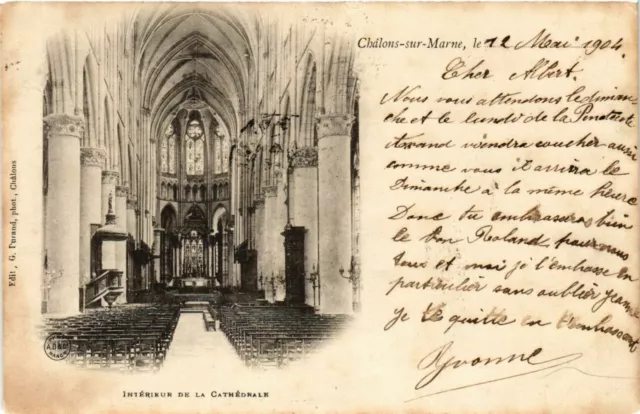 Châlons-sur-Marne, le 12 Mai 1904
Cher Albert.
Nous vous attendons le diman-
che et le lundi de la Pentecôte
viendra coucher aussi
comme vous il arrivra le
Dimanche à la même heure
Donc tu embrasseras bien
le bon Roland pour nous
tous et moi je l'embrasse en
particulier sans oublier Jeanne
Je te quitte en t'embrassant
Yvonne
Edit. G. Durand, phot., Châlons
INTÉRIEUR DE LA CATHÉDRALE